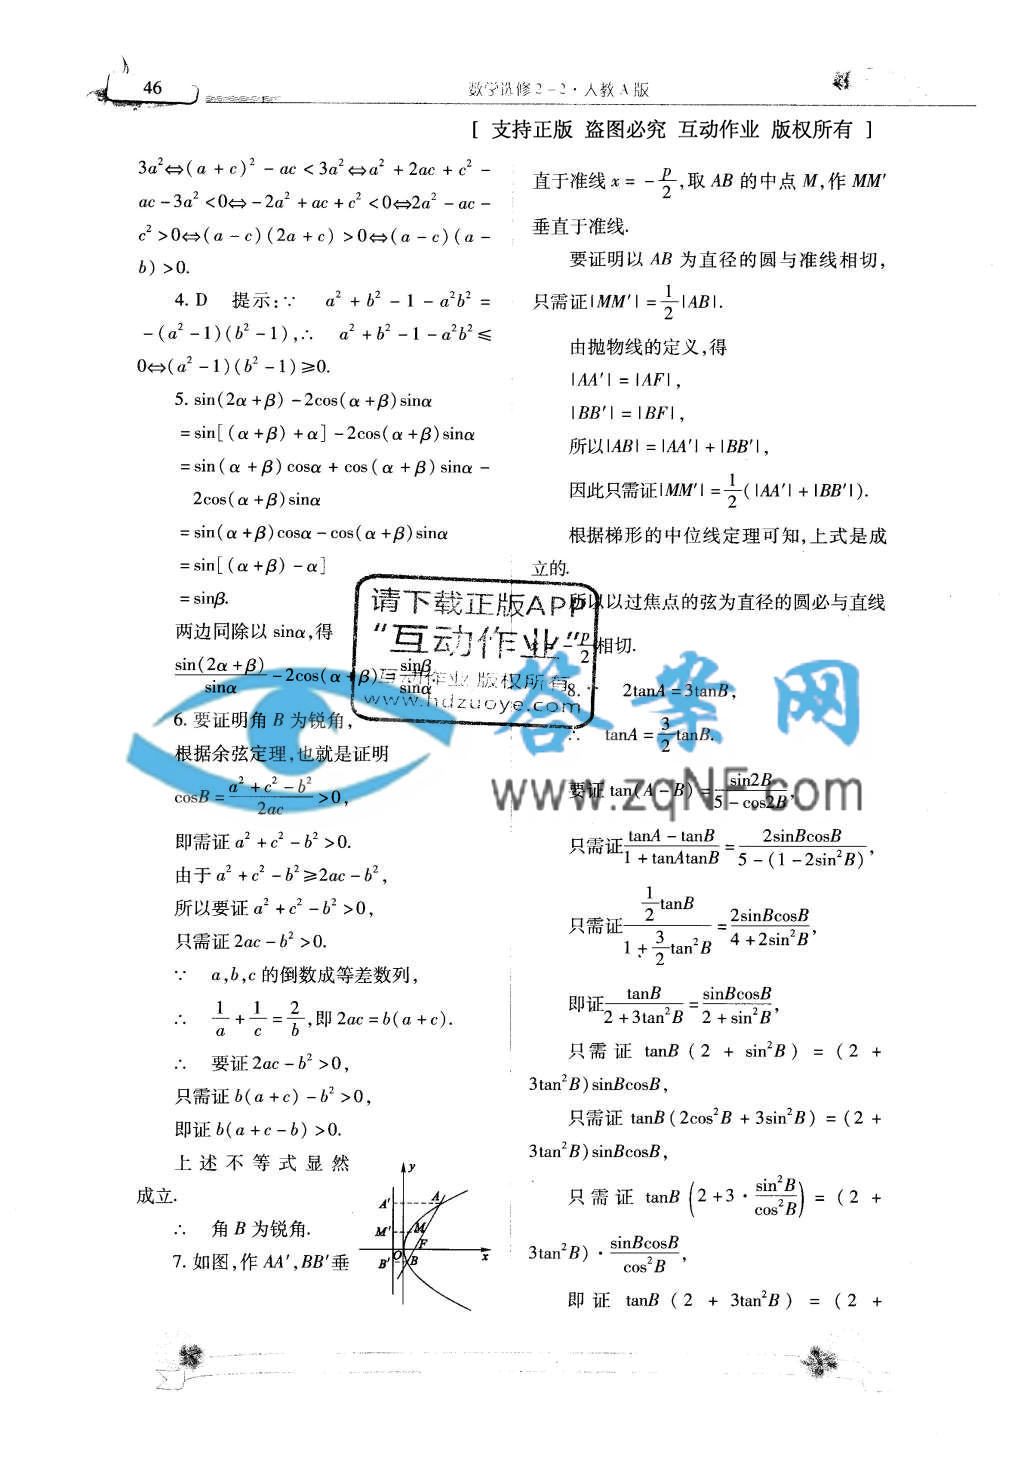 46
数学选修2-2·人教A版
[ 支持正版 盗图必究 互动作业 版权所有 ]
3a²⇔(a + c)² - ac < 3a²⇔a² + 2ac + c² -
ac - 3a² < 0⇔ - 2a² + ac + c² < 0⇔2a² - ac -
c² > 0⇔(a - c)(2a + c) > 0⇔(a - c)(a -
b) > 0.
4. D 提示:∵ a² + b² - 1 - a²b² =
-(a² - 1)(b² - 1),∴ a² + b² - 1 - a²b² ≤
0⇔(a² - 1)(b² - 1) ≥ 0.
5. sin(2α + β) - 2cos(α + β)sinα
= sin[(α + β) + α] - 2cos(α + β)sinα
= sin(α + β)cosα + cos(α + β)sinα -
2cos(α + β)sinα
= sin(α + β)cosα - cos(α + β)sinα
= sin[(α + β) - α]
= sinβ.
两边同除以 sinα,得
sin(2α + β)/sinα - 2cos(α + β) sinβ/sinα
6. 要证明角 B 为锐角,
根据余弦定理,也就是证明
cosB = (a² + c² - b²)/2ac > 0,
即需证 a² + c² - b² > 0.
由于 a² + c² - b² ≥ 2ac - b²,
所以要证 a² + c² - b² > 0,
只需证 2ac - b² > 0.
∵ a,b,c 的倒数成等差数列,
∴ 1/a + 1/c = 2/b,即 2ac = b(a + c).
∴ 要证 2ac - b² > 0,
只需证 b(a + c) - b² > 0,
即证 b(a + c - b) > 0.
上述不等式显然
成立.
∴ 角 B 为锐角.
7. 如图,作 AA′,BB′垂
y
A′ A
M′ M
F
O x
B′ B
直于准线 x = - p/2,取 AB 的中点 M,作 MM′
垂直于准线.
要证明以 AB 为直径的圆与准线相切,
只需证|MM′| = 1/2|AB|.
由抛物线的定义,得
|AA′| = |AF|,
|BB′| = |BF|,
所以|AB| = |AA′| + |BB′|,
因此只需证|MM′| = 1/2(|AA′| + |BB′|).
根据梯形的中位线定理可知,上式是成
立的.
所以以过焦点的弦为直径的圆必与直线
x = - p/2 相切.
8. ∵ 2tanA = 3tanB,
∴ tanA = 3/2 tanB.
要证 tan(A - B) = sin2B/(5 - cos2B),
只需证 (tanA - tanB)/(1 + tanAtanB) = 2sinBcosB/(5 - (1 - 2sin²B)),
只需证 (1/2 tanB)/(1 + 3/2 tan²B) = 2sinBcosB/(4 + 2sin²B),
即证 tanB/(2 + 3tan²B) = sinBcosB/(2 + sin²B),
只需证 tanB(2 + sin²B) = (2 +
3tan²B)sinBcosB,
只需证 tanB(2cos²B + 3sin²B) = (2 +
3tan²B)sinBcosB,
只需证 tanB(2 + 3 · sin²B/cos²B) = (2 +
3tan²B) · sinBcosB/cos²B,
即证 tanB(2 + 3tan²B) = (2 +
请下载正版APP
“互动作业”
互动作业 版权所有
www.hdzuoye.com
答案网
www.zqNF.com